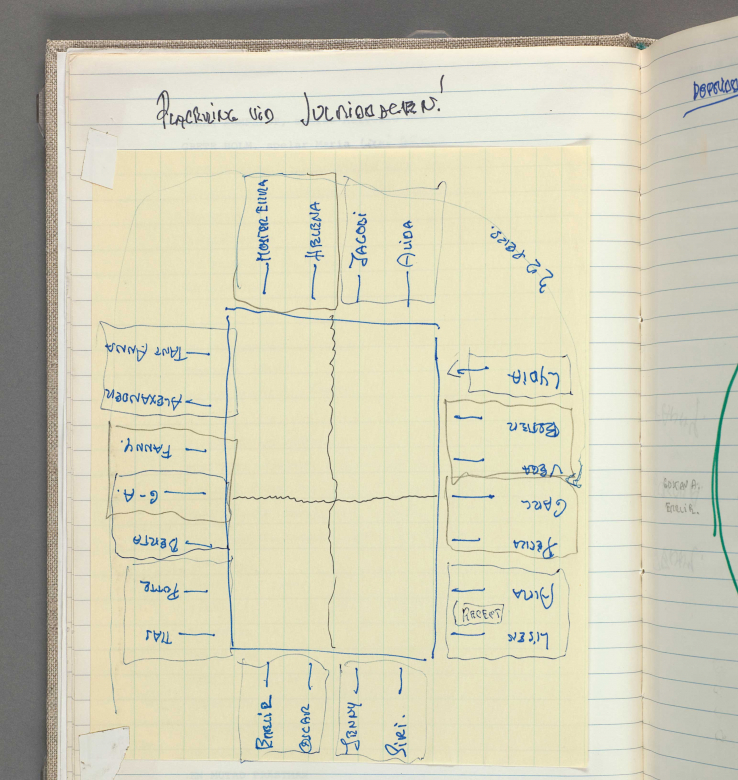 PLACERING VID JULMIDDAGEN!
MOSTER EMMA
HELENA
JACOBI
ALIDA
22 PERS.
TANT ANNA
ALEXANDER
FANNY.
G-A.
BERTA
PUTTE
MAJ
LYDIA
ESTER
VEGA
CARL
PETRA
ALMA
LISEN
EMELIE
OSCAR
JENNY
SIRI.
EMELIE.